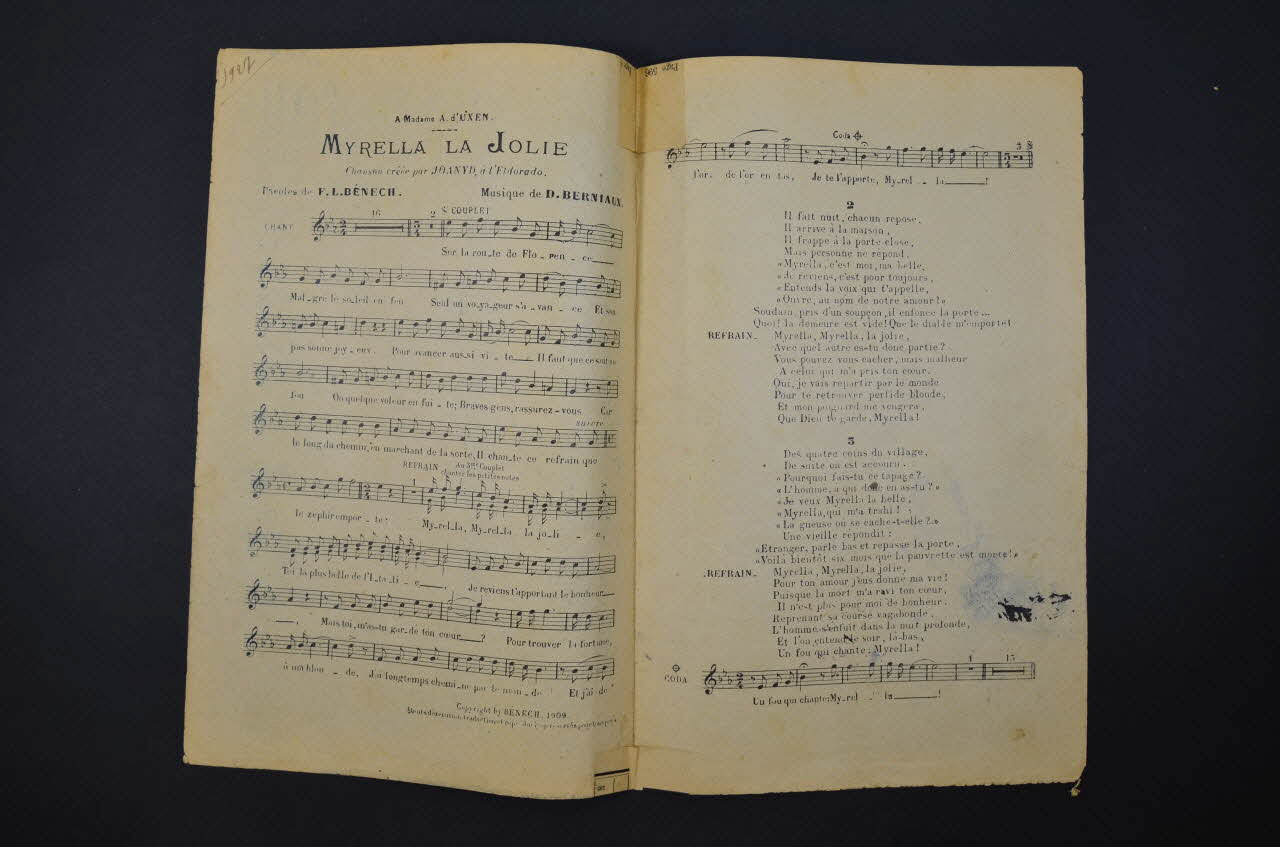 1927
Page 596
A Madame A. d'UXEN.
MYRELLA LA JOLIE
Chanson créée par JOANYD, à l'Eldorado.
Paroles de F. L. BÉNECH.
Musique de D. BERNIAUX.
16
2
COUPLET
CHANT
Sur la rou_te de Flo_ren_ce
Mal_gré le so_leil en feu Seul un vo_ya_geur s'a_van_ce Et son
pas sonne joy_eux. Pour avancer aus_si vi_te Il faut que ce soit un
fou Ou quelque voleur en fui_te; Braves gens, rassurez_vous Car
suivre
le long du chemin, en marchant de la sorte, Il chan_te ce refrain que
REFRAIN
Au 3me Couplet
chanter les petites notes
1
le zéphir empor_te: My_rel_la, My_rel_la la jo_li_e,
Toi la plus belle de l'I_ta_li_e Je reviens t'apportant le bonheur
Mais toi, m'as_tu gar_dé ton cœur? Pour trouver la fortune,
à ma blon_de, J'ai longtemps chemi_né par le mon_de Et j'ai de
Copyright by BENECH, 1909.
Coda
3
l'or, de l'or en tas, Je te l'apporte, Myrel_la!
2
Il fait nuit, chacun repose,
Il arrive à la maison,
Il frappe à la porte close,
Mais personne ne répond.
«Myrella, c'est moi, ma belle,
«Je reviens, c'est pour toujours,
«Entends la voix qui t'appelle,
«Ouvre, au nom de notre amour!»
Soudain, pris d'un soupçon, il enfonce la porte...
Quoi! la demeure est vide! Que le diable m'emporte!
REFRAIN_ Myrella, Myrella, la jolie,
Avec quel autre es-tu donc partie?
Vous pouvez vous cacher, mais malheur
A celui qui m'a pris ton cœur.
Oui, je vais repartir par le monde
Pour te retrouver perfide blonde,
Et mon poignard me vengera,
Que Dieu te garde, Myrella!
3
Des quatre coins du village,
De suite on est accouru.
«Pourquoi fais-tu ce tapage?
«L'homme, à qui donc en as-tu?»
«Je veux Myrella la belle,
«Myrella, qui m'a trahi!
«La gueuse où se cache-t-elle?»
Une vieille répondit:
«Etranger, parle bas et repasse la porte,
«Voilà bientôt six mois que la pauvrette est morte!»
REFRAIN_ Myrella, Myrella, la jolie,
Pour ton amour j'eus donné ma vie!
Puisque la mort m'a ravi ton cœur,
Il n'est plus pour moi de bonheur.
Reprenant sa course vagabonde,
L'homme s'enfuit dans la nuit profonde,
Et l'on entend le soir, là-bas,
Un fou qui chante: Myrella!
CODA
1
15
Un fou qui chante: My_rel_la!